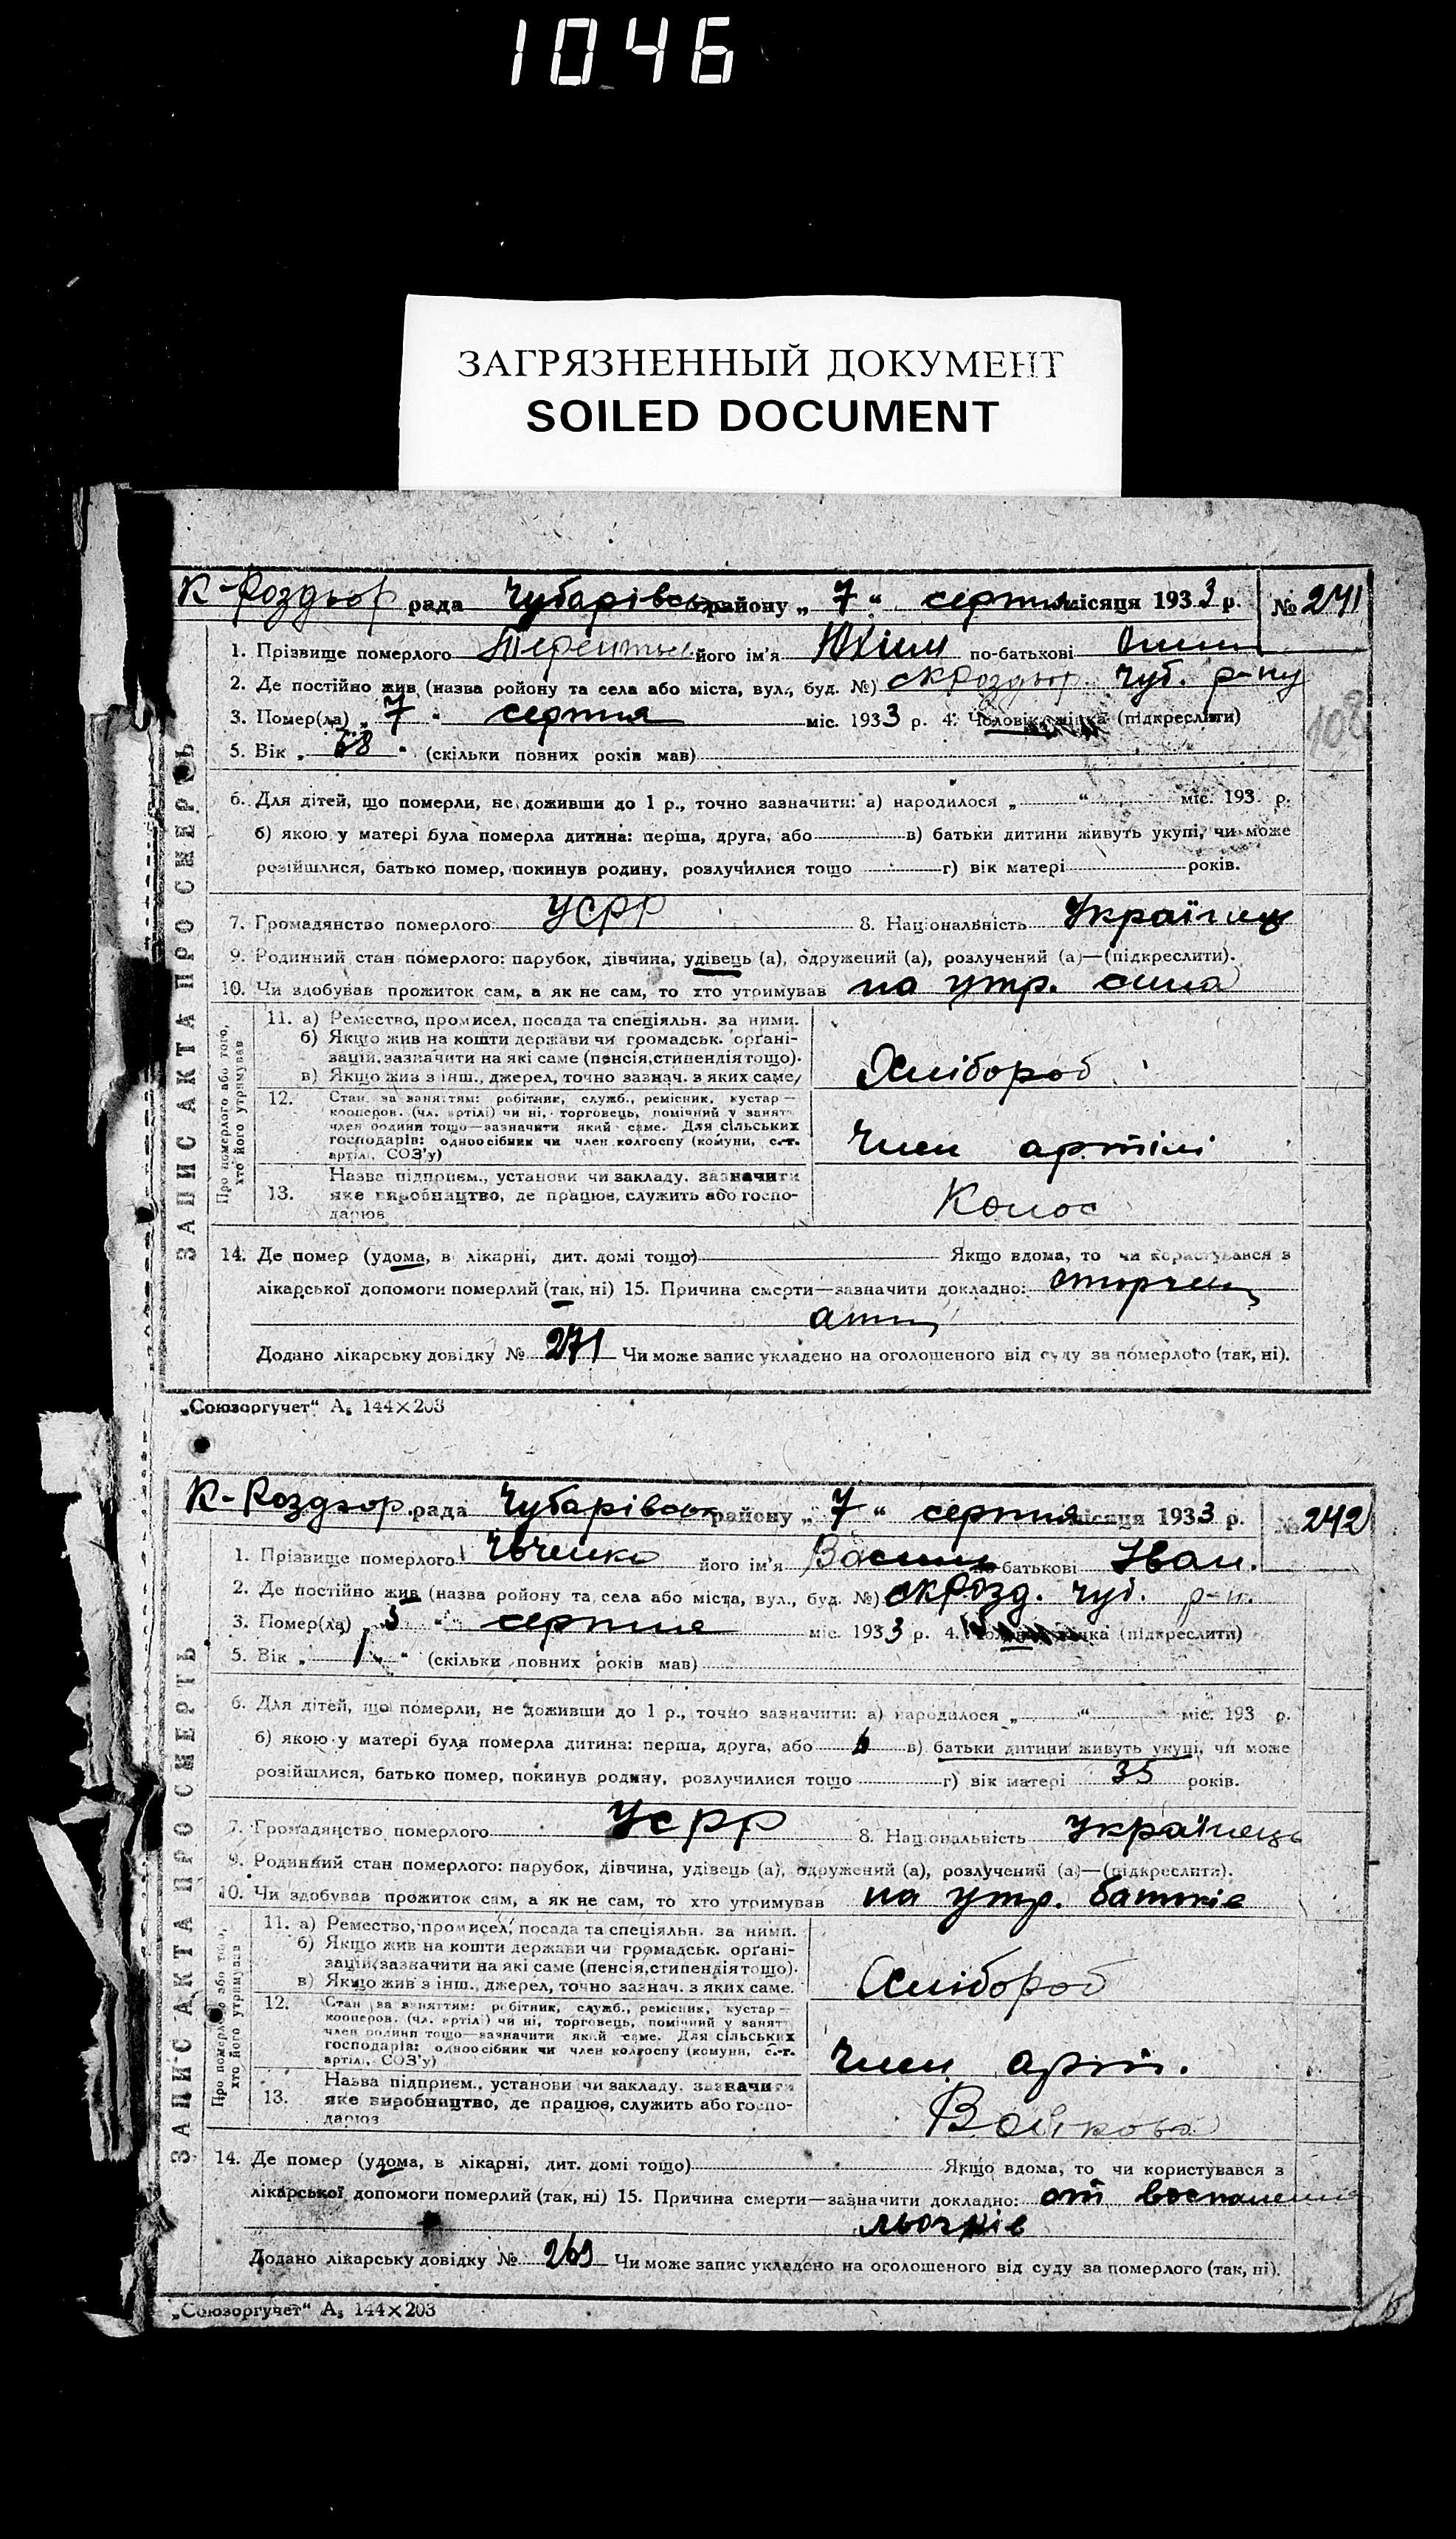 1046
ЗАГРЯЗНЕННЫЙ ДОКУМЕНТ
SOILED DOCUMENT
К-Роздзор рада Чубарівськ району „7“ серпня місяця 1933 р. № 241
1. Прізвище померлого його ім'я Юхим по-батькові
2. Де постійно жив (назва ройону та села або міста, вул., буд. №) Чуб. р-ну
3. Помер(ла) „7“ серпня міс. 1933 р. 4. Чоловік, жінка (підкреслити)
5. Вік „68“ (скільки повних рохів мав)
108
6. Для дітей, що померли, не доживши до 1 р., точно зазначити: а) народилося „ “ міс. 193 р.
б) якою у матері була померла дитина: перша, друга, або в) батьки дитини живуть укупі, чи може
розійшлися, батько помер, покинув родину, розлучилися тощо г) вік матері років.
7. Громадянство померлого УСРР 8. Національність Українець
9. Родинний стан померлого: парубок, дівчина, удівець (а), одружений (а), розлучений (а)—(підкреслити).
10. Чи здобував прожиток сам, а як не сам, то хто утримував на утр. сина
ЗАПИС АКТА ПРО СМЕРТЬ
Про померлого або того, хто його утримував
11. а) Ремество, промисел, посада та спеціяльн. за ними.
б) Якщо жив на кошти держави чи громадськ. орґані-
зацій, зазначити на які саме (пенсія, стипендія тощо).
в) Якщо жив з інш., джерел, точно зазнач. з яких саме,
Хлібороб
12. Стан за заняттям: робітник, служб., ремісник, кустар—
кооперов. (чл. артілі) чи ні, торговець, помічний у занятт
член родини тощо—зазначити який саме. Для сільських
господарів: одноосібник чи член колгоспу (комуни, с.-г.
артілі, СОЗ'у)
Член артілі
13. Назва підприєм., установи чи закладу, зазначити
яке виробництво, де працює, служить або госпо-
дарює
Колос
14. Де помер (удома, в лікарні, дит. домі тощо) Якщо вдома, то чи користувався з
лікарської допомоги померлий (так, ні) 15. Причина смерти—зазначити докладно:
Додано лікарську довідку № 271 Чи може запис укладено на оголошеного від суду за померлого (так, ні).
„Союзоргучет“ А₅ 144×203
К-Роздзор. рада Чубарівськ району „7“ серпня місяця 1933 р. № 242
1. Прізвище померлого його ім'я Василь по-батькові Іван.
2. Де постійно жив (назва ройону та села або міста, вул., буд. №) Чуб. р-н.
3. Помер(ла) „5“ серпня міс. 1933 р. 4. Чоловік, жінка (підкреслити)
5. Вік „1“ (скільки повних років мав)
6. Для дітей, що померли, не доживши до 1 р., точно зазначити: а) народилося „ “ міс. 193 р.
б) якою у матері була померла дитина: перша, друга, або 6 в) батьки дитини живуть укупі, чи може
розійшлися, батько помер, покинув родину, розлучилися тощо г) вік матері 35 років.
7. Громадянство померлого УСРР 8. Національність Українець
9. Родинний стан померлого: парубок, дівчина, удівець (а), одружений (а), розлучений (а)—(підкреслити).
10. Чи здобував прожиток сам, а як не сам, то хто утримував на утр. батьків
ЗАПИС АКТА ПРО СМЕРТЬ
Про померлого або того, хто його утримував
11. а) Ремество, промисел, посада та спеціяльн. за ними.
б) Якщо жив на кошти держави чи громадськ. орґані-
зацій, зазначити на які саме (пенсія, стипендія тощо).
в) Якщо жив з інш., джерел, точно зазнач. з яких саме.
Хлібороб
12. Стан за заняттям: робітник, служб., ремісник, кустар—
кооперов. (чл. артілі) чи ні, торговець, помічний у занятт
член родини тощо—зазначити який саме. Для сільських
господарів: одноосібник чи член колгоспу (комуни, с.-г.
артілі, СОЗ'у)
Член арт.
13. Назва підприєм., установи чи закладу, зазначити
яке виробництво, де працює, служить або госпо-
дарює
Войкова
14. Де помер (удома, в лікарні, дит. домі тощо) Якщо вдома, то чи користувався з
лікарської допомоги померлий (так, ні) 15. Причина смерти—зазначити докладно: от воспаления
льогків
Додано лікарську довідку № 269 Чи може запис укладено на оголошеного від суду за померлого (так, ні).
„Союзоргучет“ А₅ 144×203